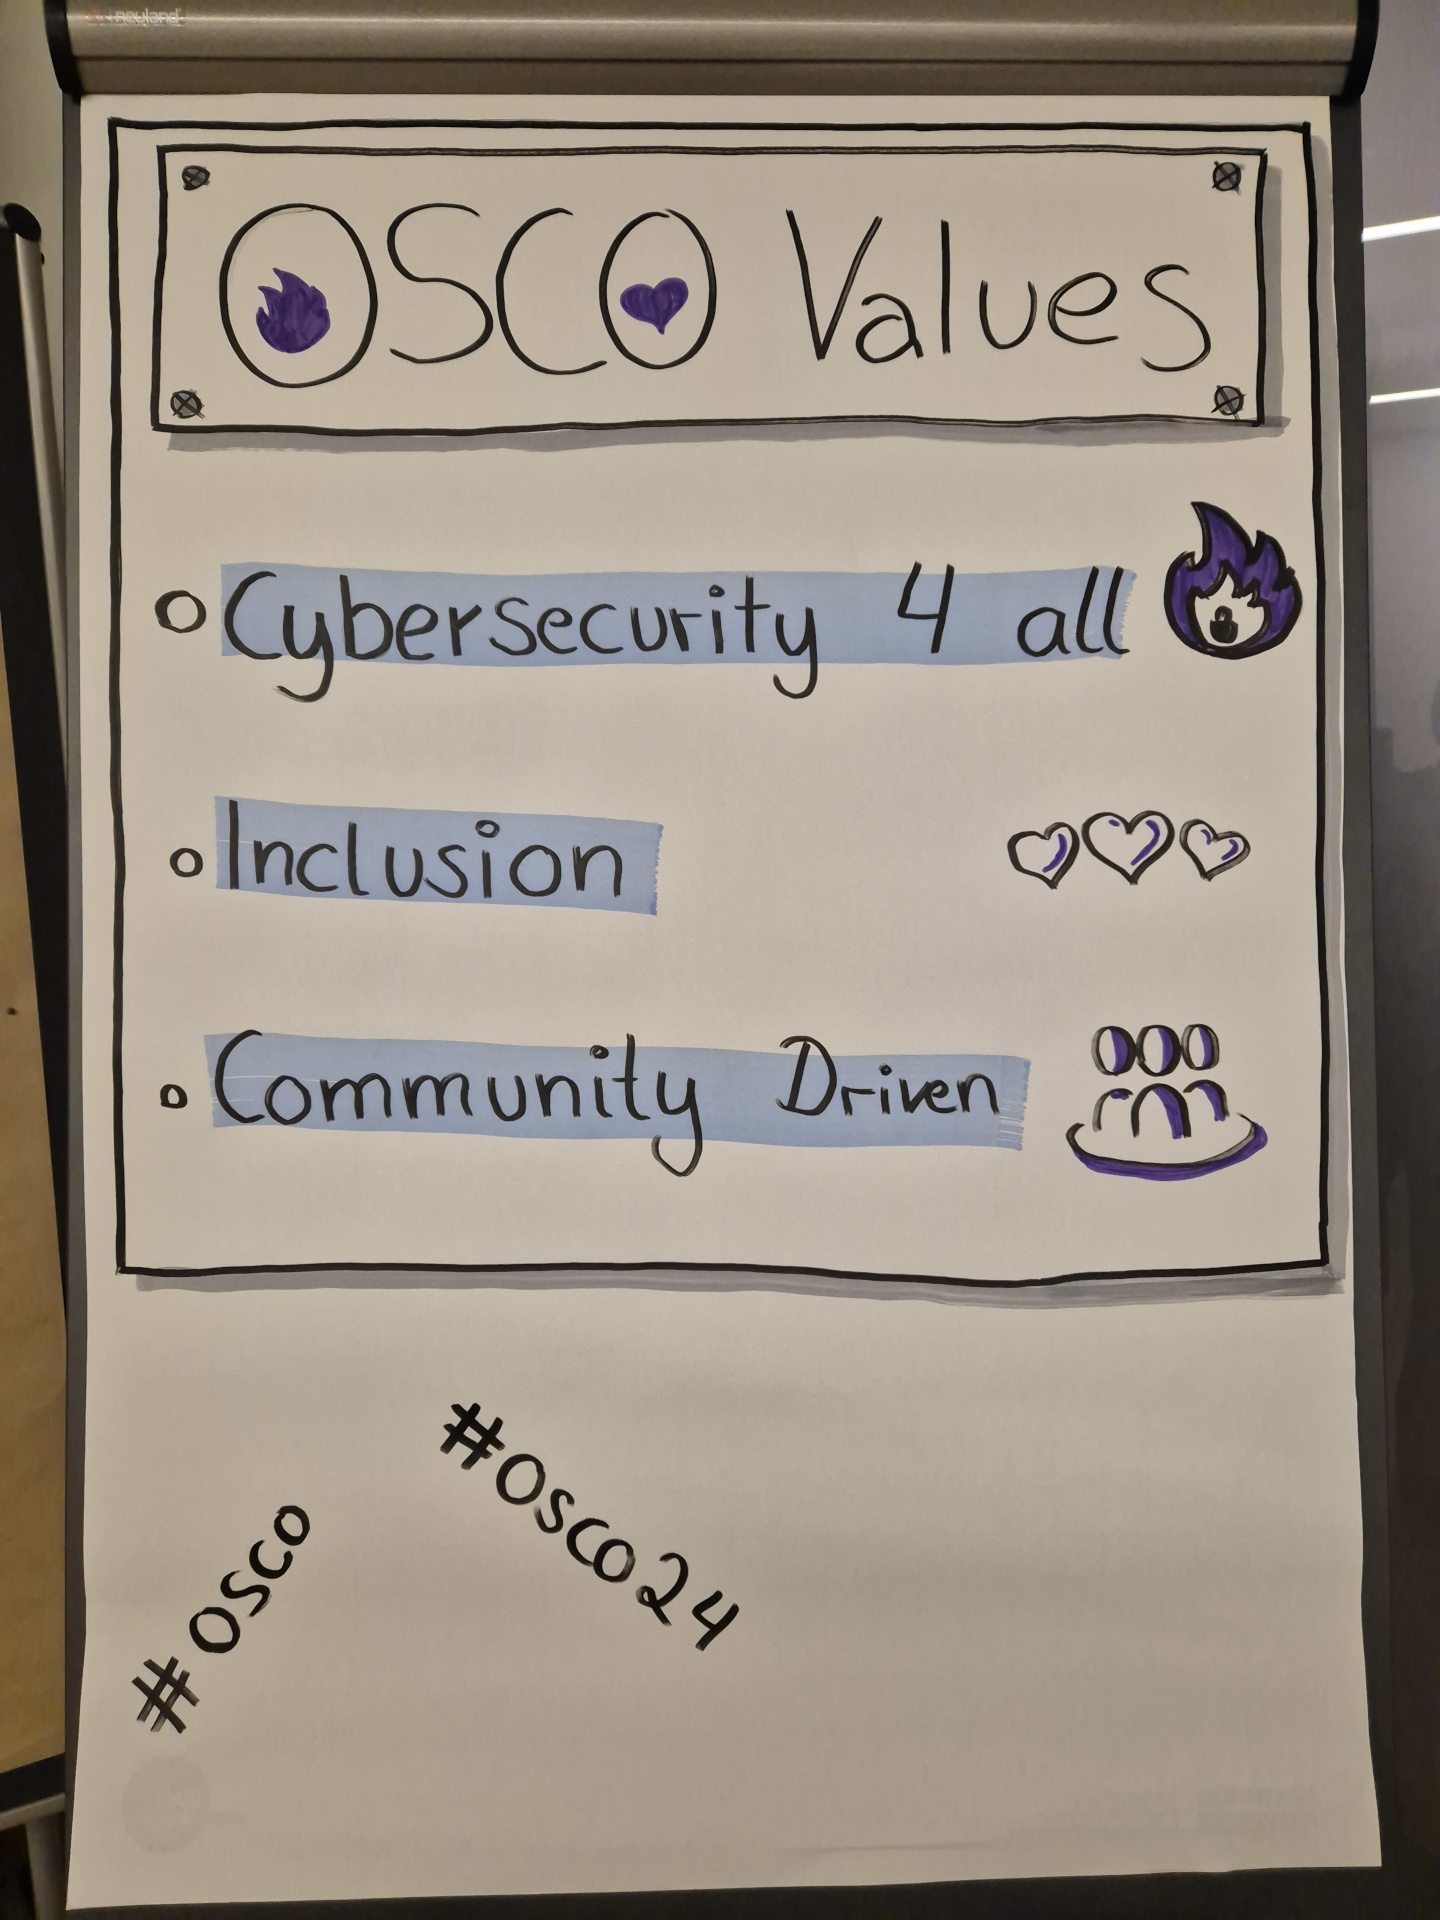 neuland
OSCO Values
Cybersecurity 4 all
Inclusion
Community Driven
#osco
#osco24